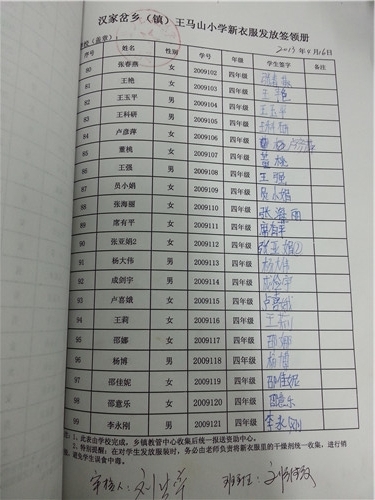 汉家岔乡（镇）王马山小学新衣服发放签领册
学校（盖章）： 2013年4月16日
序号 姓名 性别 学号 年级 学生签字 备注
80 张春燕 女 2009102 四年级 张春燕
81 王艳 女 2009103 四年级 王艳
82 王玉平 男 2009104 四年级 王玉平
83 王科研 男 2009105 四年级 王科研
84 卢彦萍 女 2009106 四年级
85 董桃 女 2009107 四年级 董桃
86 王强 男 2009108 四年级 王强
87 员小娟 女 2009109 四年级 员小娟
88 张海丽 女 2009110 四年级 张海丽
89 席有平 女 2009111 四年级 席有平
90 张亚娟2 女 2009112 四年级 张亚娟②
91 杨大伟 男 2009113 四年级 杨大伟
92 成剑宇 男 2009114 四年级 成俭宇
93 卢喜娥 女 2009115 四年级 卢喜娥
94 王莉 女 2009116 四年级 王莉
95 邵娜 女 2009117 四年级 邵娜
96 杨博 男 2009118 四年级 杨博
97 邵佳妮 女 2009119 四年级 邵佳妮
98 邵意乐 女 2009120 四年级 邵意乐
99 李永刚 男 2009121 四年级 李永刚
注：1、此表由学校完成，乡镇教管中心收集后统一报送资助中心。
2、特别提醒：在对学生发放服装时，务必由老师负责将新衣服里的干燥剂统一收集，进行销
毁，避免学生误食中毒。
审核人： 班主任：